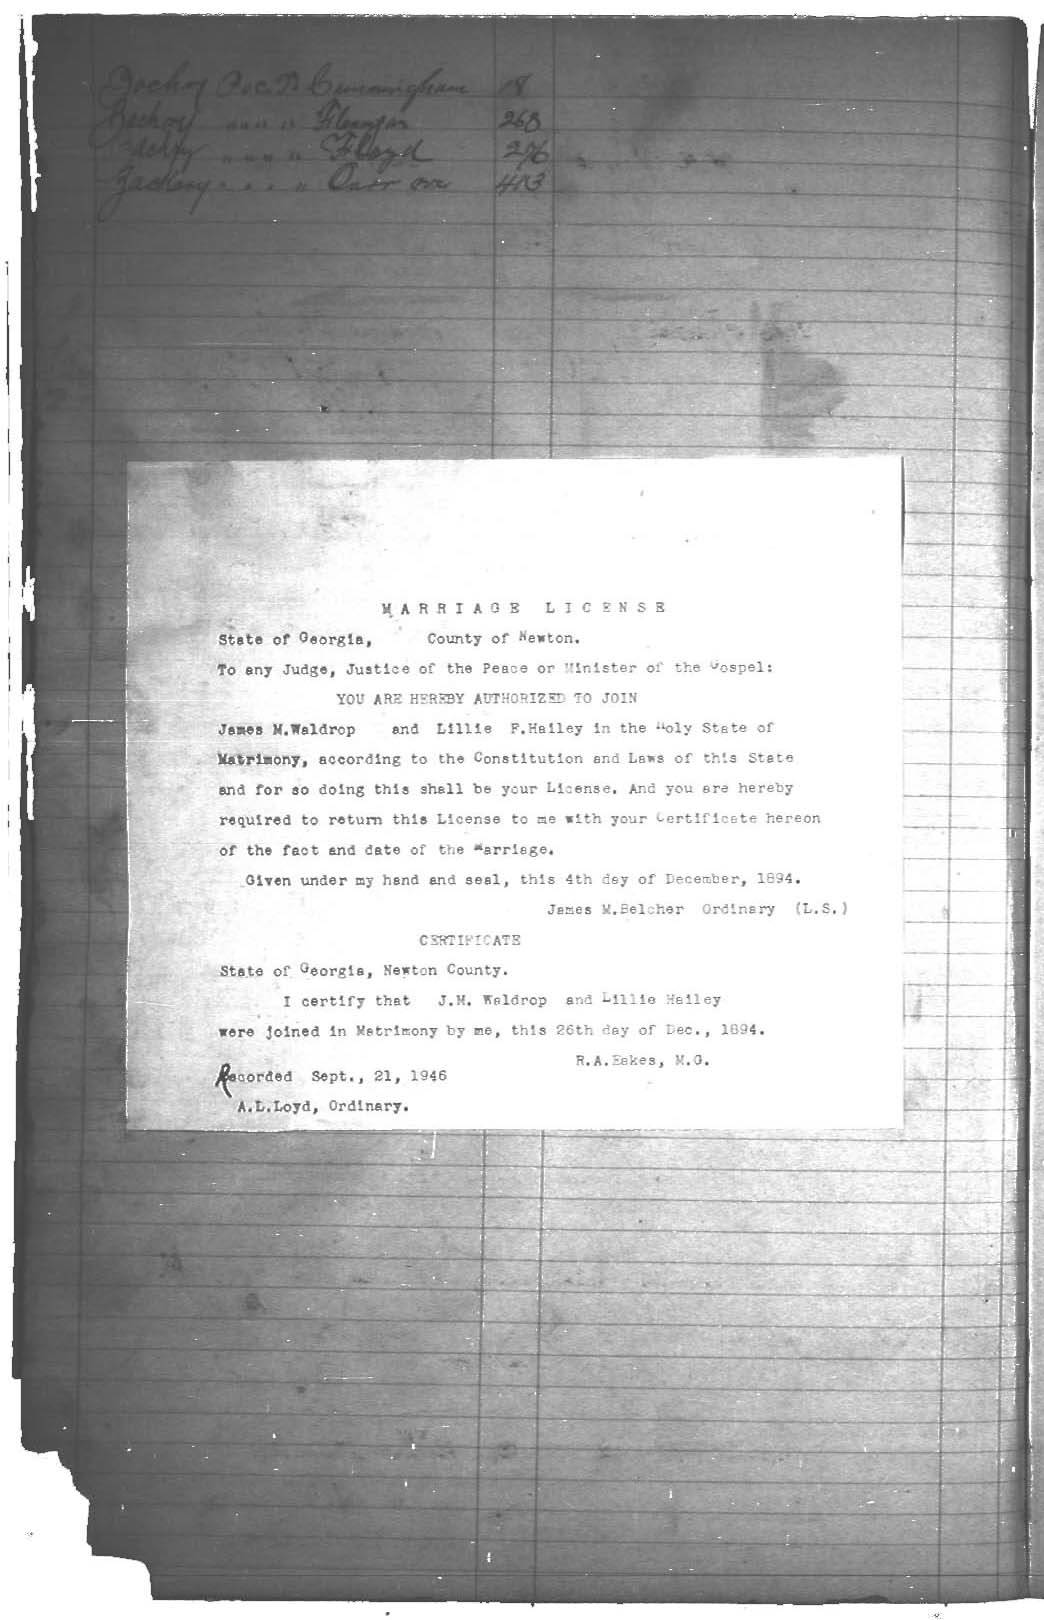 Cunningham 18
" " " " 268
" " " " Floyd 276
Zachery " " " " 413
MARRIAGE LICENSE
State of Georgia, County of Newton.
To any Judge, Justice of the Peace or Minister of the Gospel:
YOU ARE HEREBY AUTHORIZED TO JOIN
James M.Waldrop and Lillie F.Hailey in the Holy State of
Matrimony, according to the Constitution and Laws of this State
and for so doing this shall be your License. And you are hereby
required to return this License to me with your Certificate hereon
of the fact and date of the Marriage.
Given under my hand and seal, this 4th day of December, 1894.
James M.Belcher Ordinary (L.S.)
CERTIFICATE
State of Georgia, Newton County.
I certify that J.M. Waldrop and Lillie Hailey
were joined in Matrimony by me, this 26th day of Dec., 1894.
R.A.Eakes, M.G.
Recorded Sept., 21, 1946
A.L.Loyd, Ordinary.